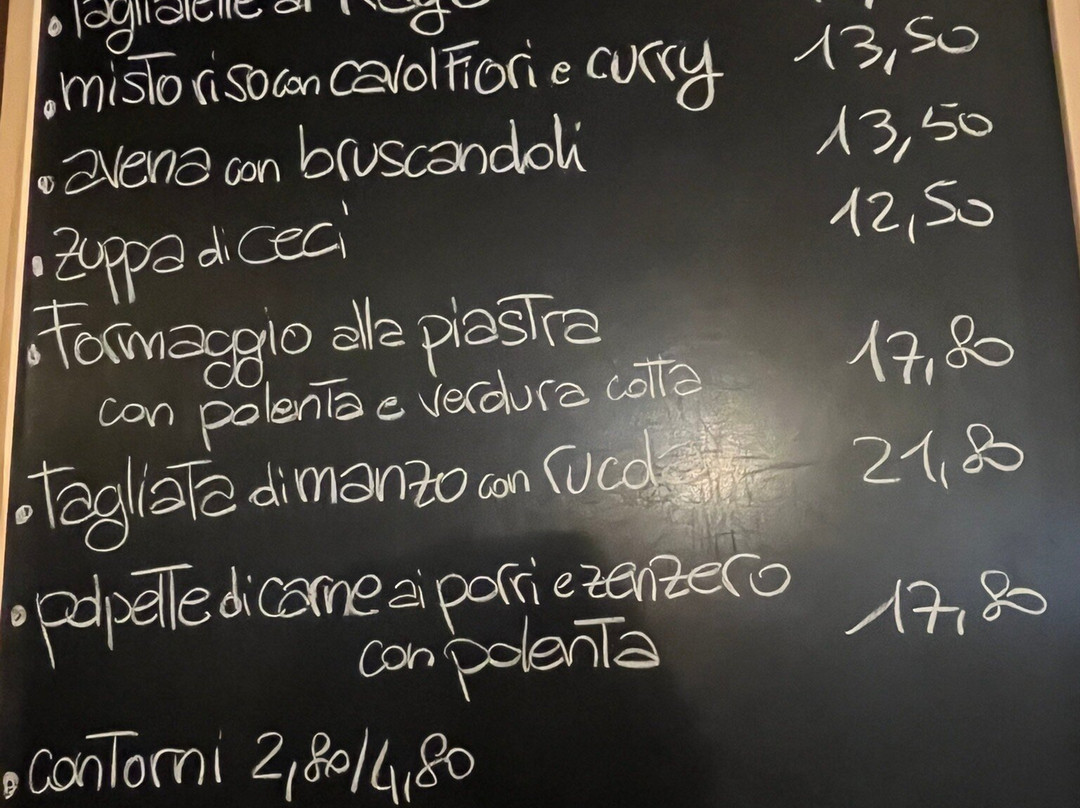 • Tagliatelle al Ragù
• misto riso con cavolfiori e curry 13,50
• avena con bruscandoli 13,50
• zuppa di ceci 12,50
• Formaggio alla piastra 17,80
con polenta e verdura cotta
• Tagliata di manzo con rucola 21,80
• polpette di carne ai porri e zenzero 17,80
con polenta
• contorni 2,80/4,80